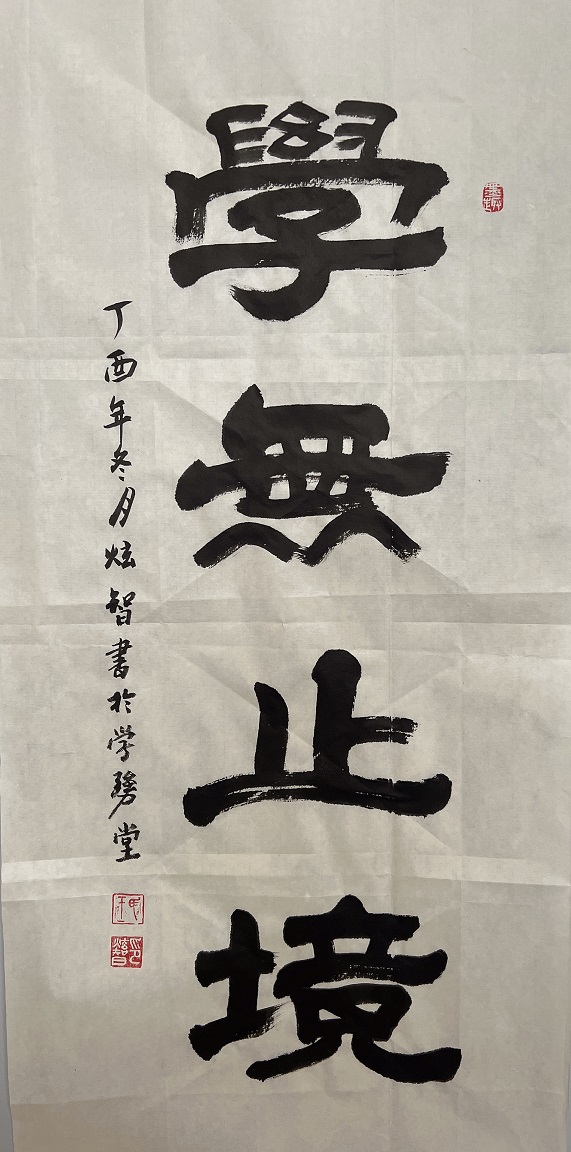 學無止境
丁酉年冬月炫智書於学勢堂
炫智